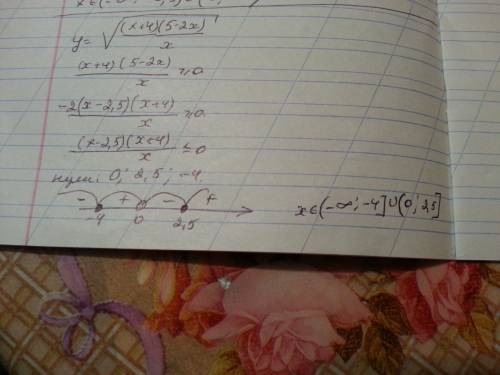 y = √((x+4)(5-2x)/x)
(x+4)(5-2x)/x ≥ 0
-2(x-2,5)(x+4)/x ≥ 0
(x-2,5)(x+4)/x ≤ 0
нули: 0; 2,5; -4
- + - +
-4 0 2,5
x∈(-∞; -4]∪(0; 2,5]